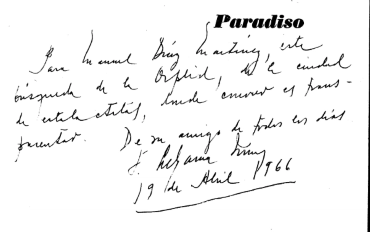 Paradiso
Para Manuel Díaz Martínez, este
búsqueda de la Orplid, de la ciudad
de estalactitas, donde conocer es trans-
parentar. De su amigo de todos los días
J. Lezama Lima
19 de Abril 1966